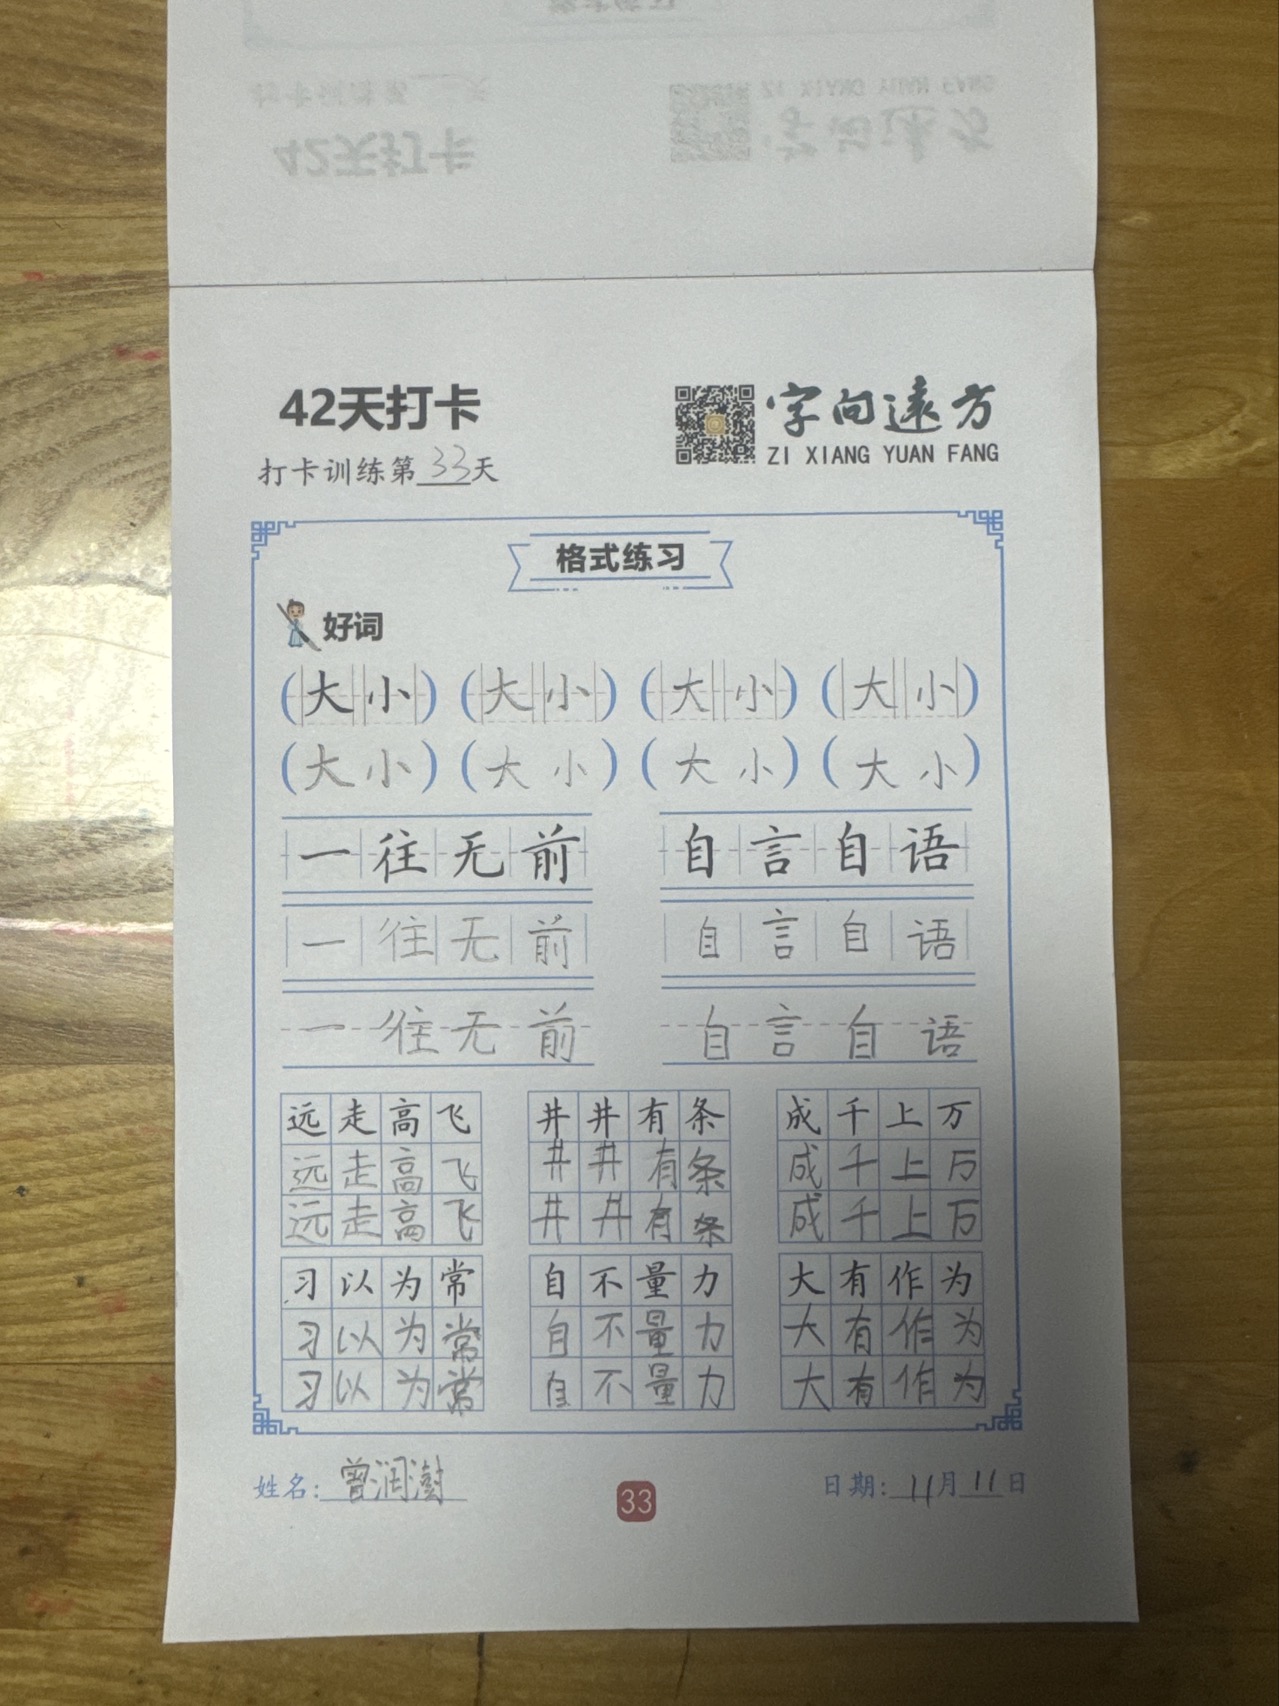 42天打卡
字向遠方
ZI XIANG YUAN FANG
打卡训练第33天
格式练习
好词
(大小) (大小) (大小) (大小)
(大小) (大小) (大小) (大小)
一往无前 自言自语
一往无前 自言自语
一往无前 自言自语
远走高飞 井井有条 成千上万
远走高飞 井井有条 成千上万
远走高飞 井井有条 成千上万
习以为常 自不量力 大有作为
习以为常 自不量力 大有作为
习以为常 自不量力 大有作为
姓名:曾润澍 33 日期:11月11日